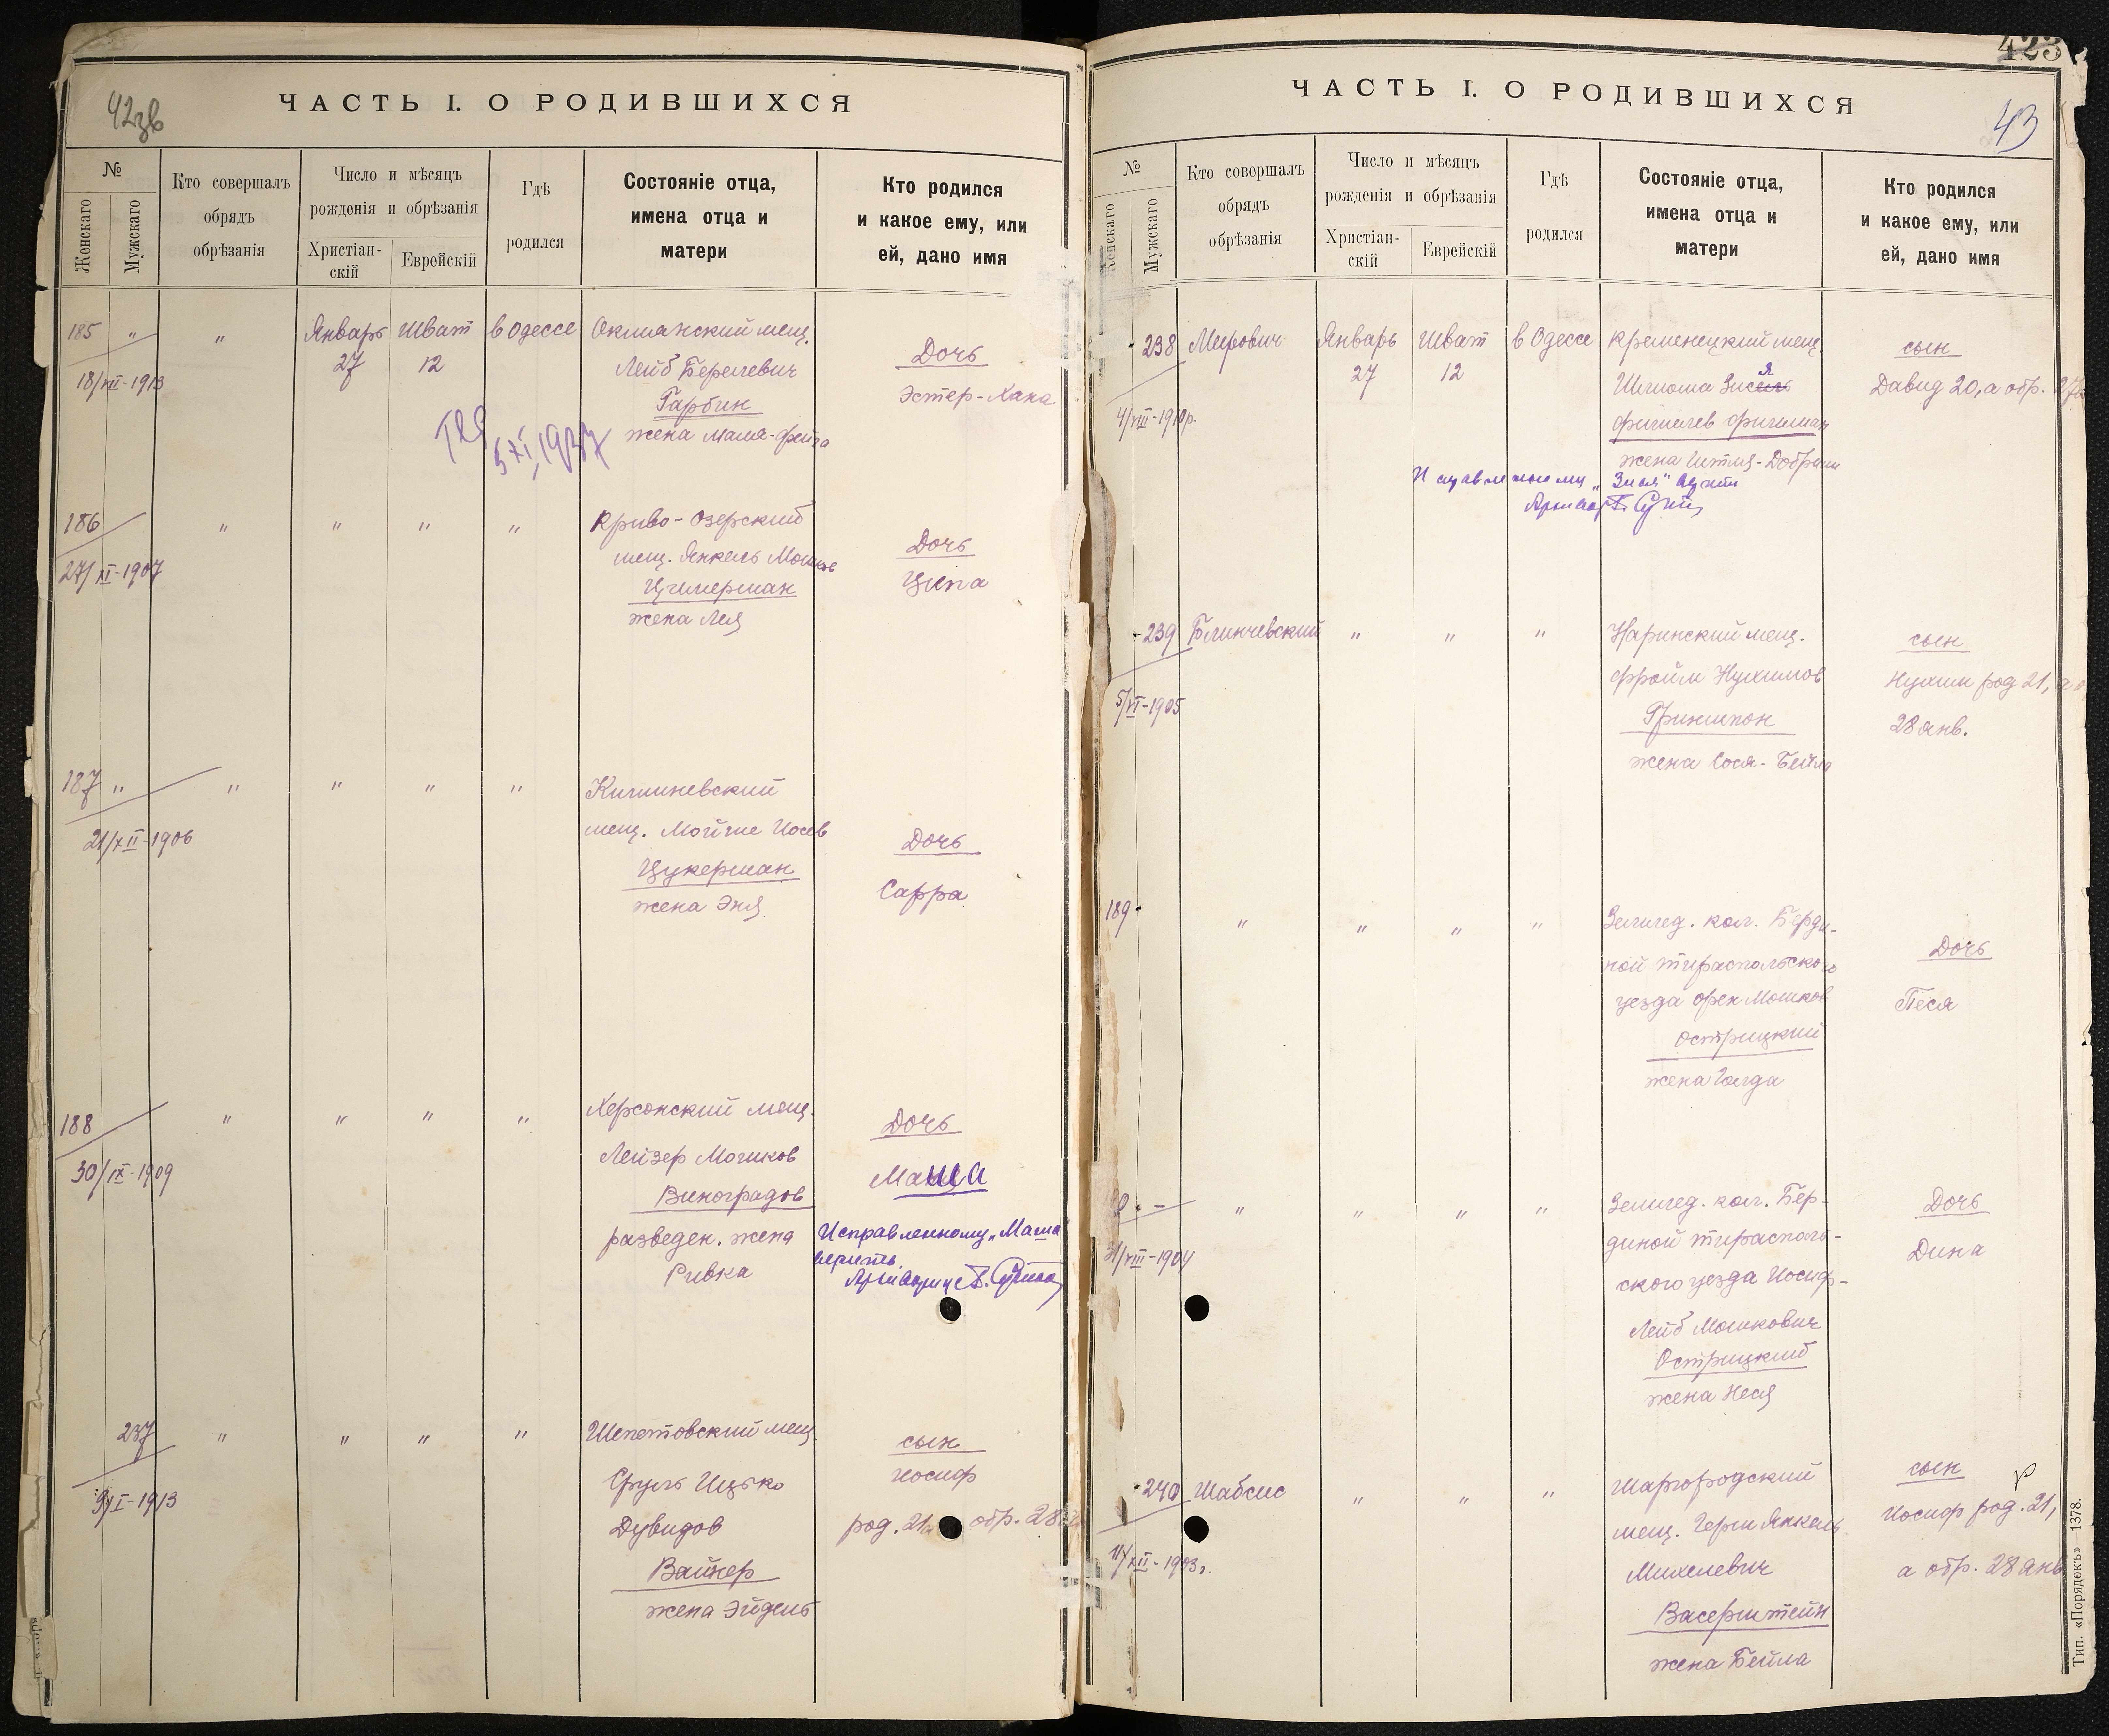 42зв
ЧАСТЬ I. О РОДИВШИХСЯ
№
Женскаго
Мужскаго
Кто совершалъ
обрядъ
обрѣзанія
Число и мѣсяцъ
рожденія и обрѣзанія
Христіан-
скій
Еврейскій
Гдѣ
родился
Состояніе отца,
имена отца и
матери
Кто родился
и какое ему, или
ей, дано имя
185 " " Январь Шват в Одессе Окманский мещ.
27 12 Лейб Берелевич Дочь
18/VII-1913 Гарбин Эстер-Хана
жена Маля-Фейга
5 XI 1937
186 " " " " Криво-Озерский
мещ. Янкель Мошков Дочь
27/XI-1907 Цимерман Ципа
жена Лея
187 " " " " " Кишиневский
мещ. Мойше Иосев Дочь
21/XII-1906 Цукерман Сарра
жена Эня
188 " " " " Херсонский мещ. Дочь
Лейзер Мошков
30/IX-1909 Виноградов Маша
разведен. жена Исправленному „Маша
Ривка верить.
237 " " " " Шепетовский мещ. сын
Сруль Ицько Иосиф
9/I-1913 Дувидов род. 21 а обр. 28
Вайнер
жена Эйдель
423
43
ЧАСТЬ I. О РОДИВШИХСЯ
№
Женскаго
Мужскаго
Кто совершалъ
обрядъ
обрѣзанія
Число и мѣсяцъ
рожденія и обрѣзанія
Христіан-
скій
Еврейскій
Гдѣ
родился
Состояніе отца,
имена отца и
матери
Кто родился
и какое ему, или
ей, дано имя
238 Мирович Январь Шват в Одессе Кременецкий мещ. сын
27 12 Шлиома Зися Давид 20, а обр. 27
4/VIII-1910г. Фишелев Фишман
жена Итля-Добриш
Исправленному „Зися" верить
239 Блинчевский " " " Наринский мещ. сын
Фройм Нухимов Нухим род 21, а
5/VI-1905 Гриншпон 28 янв.
жена Сося-Бейла
189 " " " " Земляд. кол. Берди-
ной тираспольского Дочь
уезда Фрек Мошков Песя
Острицкий
жена Голда
" " " " Земляд. кол. Бер- Дочь
диной тирасполь- Дина
31/VIII-1904 ского уезда Иосиф-
Лейб Мошкович
Острицкий
жена Неся
240 Шабсис " " " Шаргородский сын
мещ. Герш Янкель Иосиф род. 21,
Михелевич а обр. 28 янв
Васерштейн
жена Бейла
Тип. «Порядокъ»—1378.